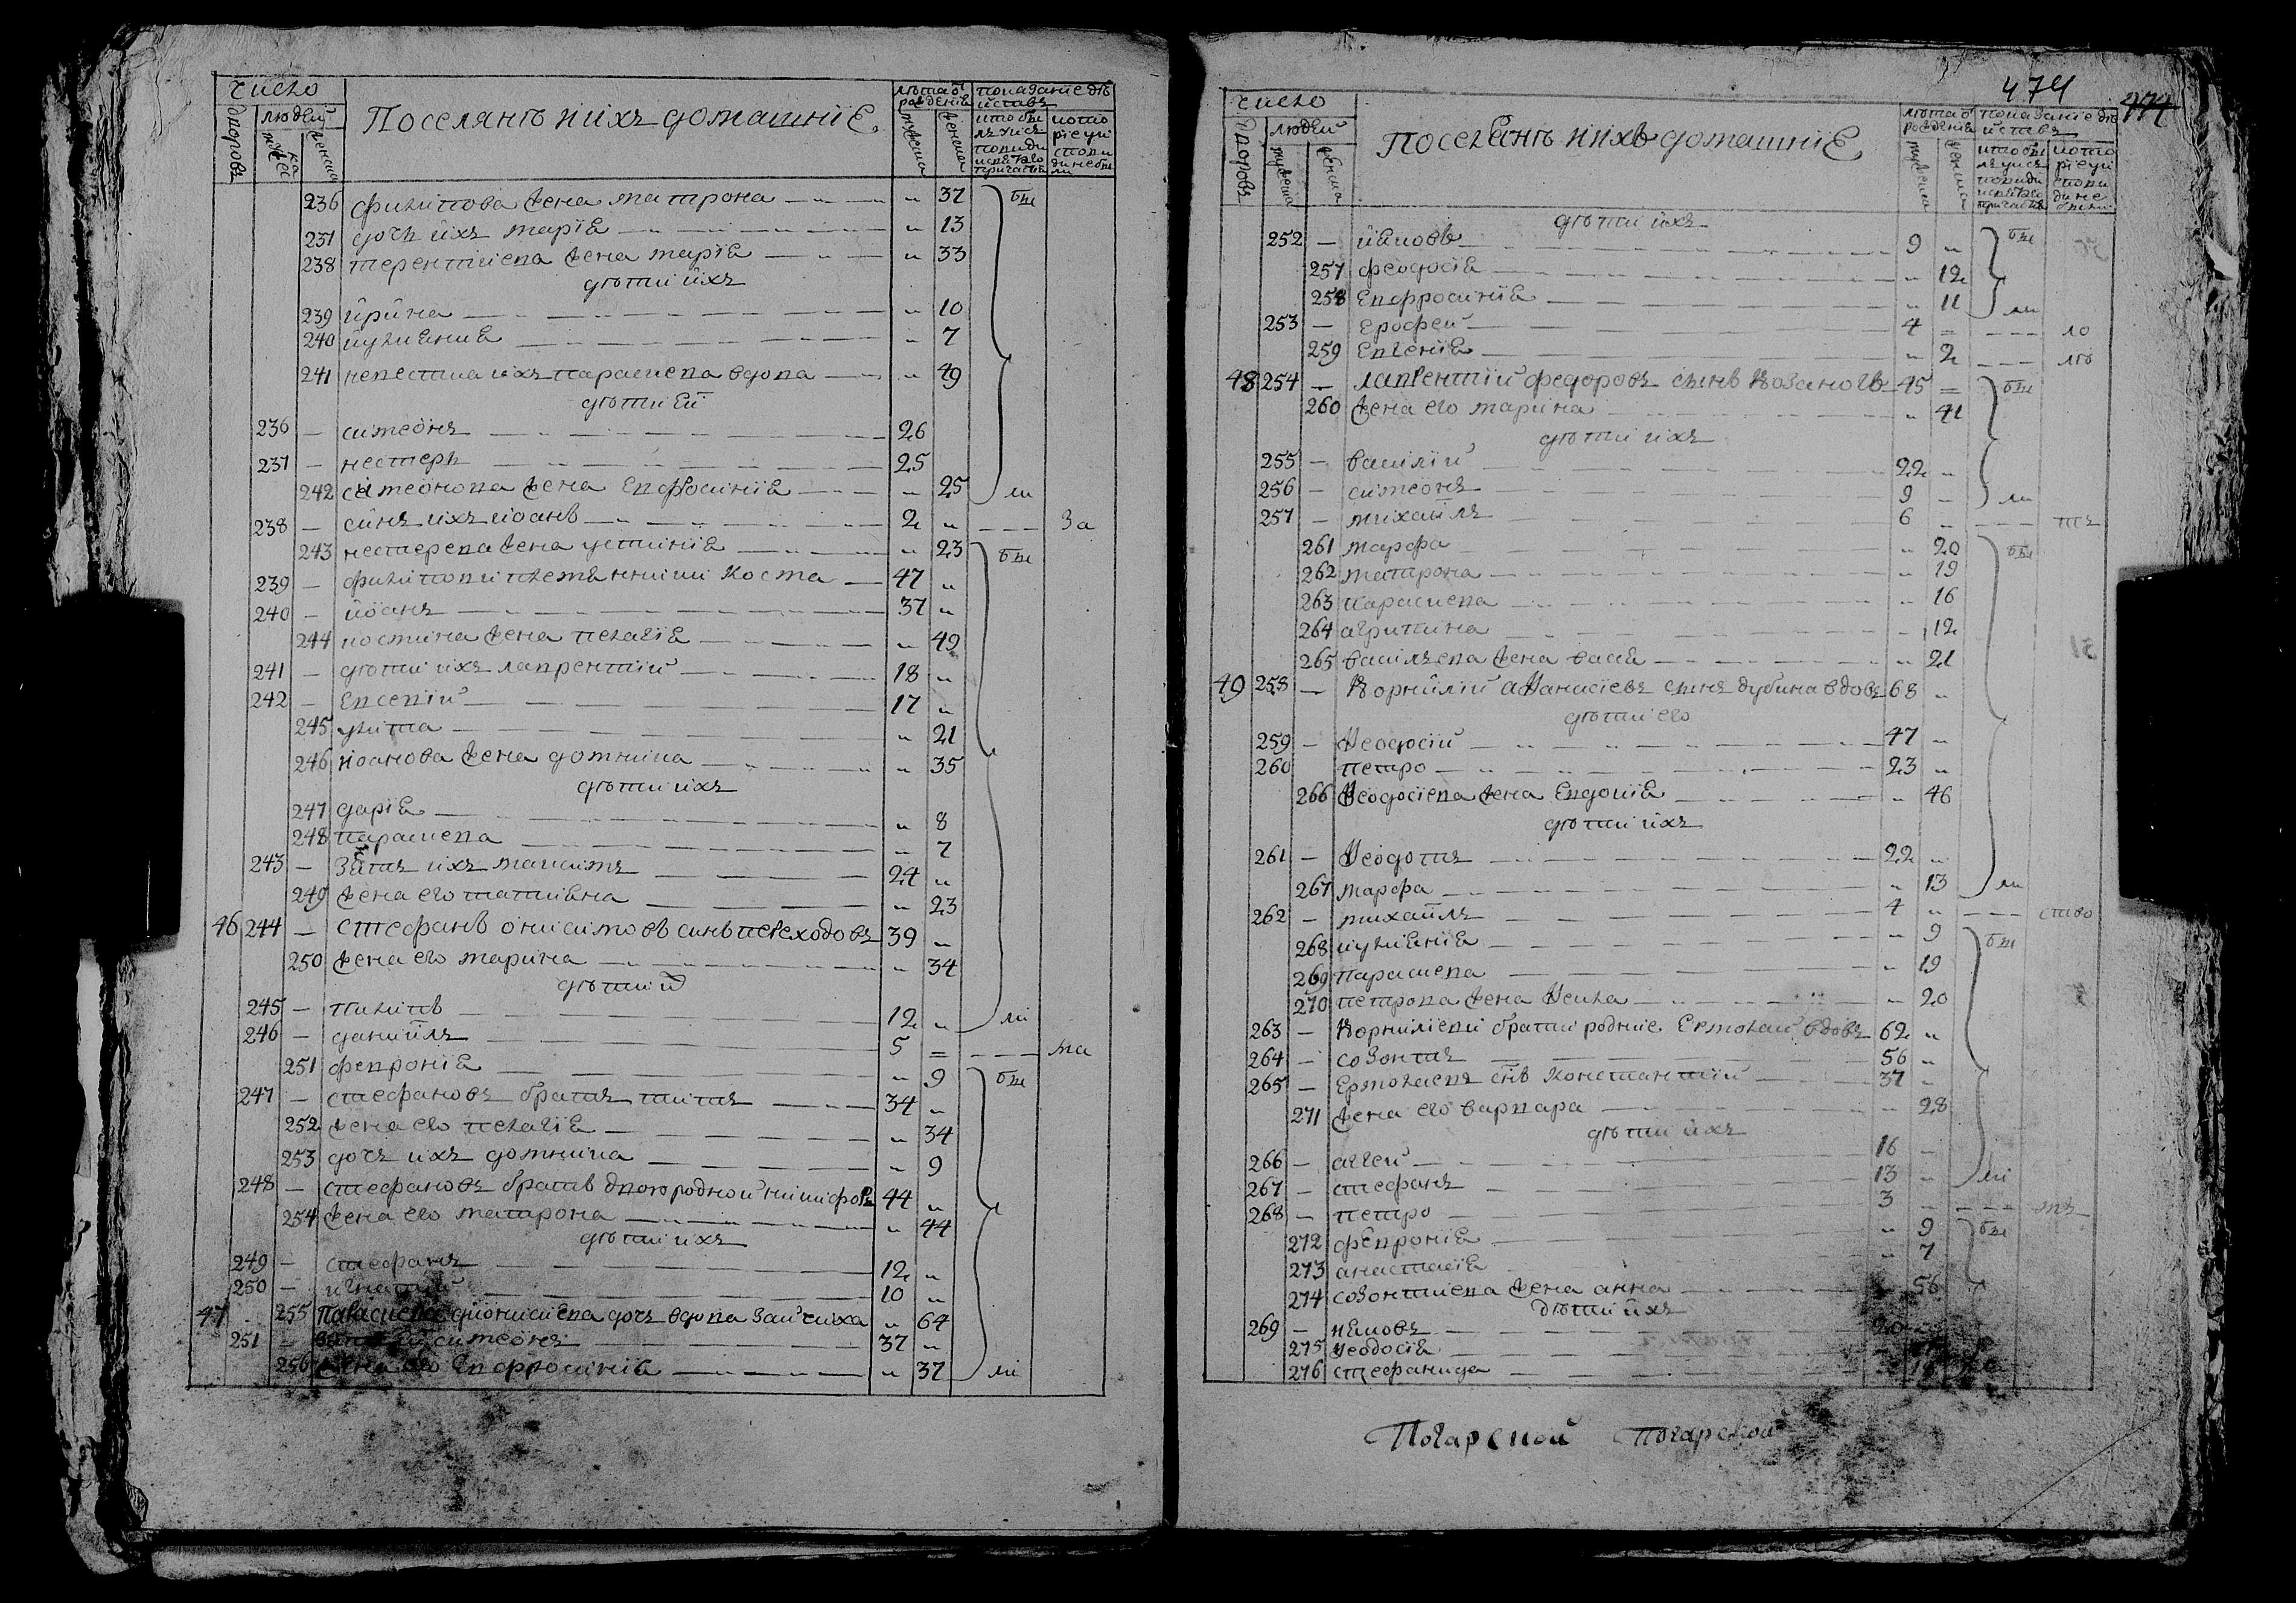 число
дворовъ
людей
мужеска
женска
Поселянѣ и ихъ домашніе
лѣта от рожденія
мужеска
женска
показаніе дѣйства
236 филипова жена матрона 37 бы
237 дочь ихъ марія 13
238 терентиева жена марія 33
дѣти ихъ
239 ирина 10
240 иулианиа 7
241 невестка ихъ параскева вдова 49
дѣти ей
236 симеонъ 26
237 нестеръ 25
242 симеонова жена евфросиніа 25 ли
238 синъ ихъ иоанъ 2 за
243 нестерева жена устиніа 23 бы
239 филипови племянники косма 47
240 иоанъ 37
244 космина жена пелагіа 49
241 дѣти ихъ лаврентий 18
242 евсевій 17
245 улита 21
246 иоанова жена домникиа 35
дѣти ихъ
247 дарія 8
248 параскева 7
243 зять ихъ максимъ 24
249 жена его татиана 23
46 244 стефанъ онисимовъ синъ переходовъ 39
250 жена его марина 34
дѣти ихъ
245 филипъ 12 ли
246 даниилъ 5 ма
251 феврониа 9 бы
247 стефановъ братъ титъ 34
252 жена его пелагіа 34
253 дочъ ихъ домникиа 9
248 стефановъ братъ двоюродной никифоръ 44
254 жена его матрона 44
дѣти ихъ
249 стефанъ 12
250 игнатий 10
47 255 дионисиева дочъ вдова зайчиха 64
251 симеонъ 37
256 жена его евфросиниа 37 ли
474
474
число
дворовъ
людей
мужеска
женска
Поселянѣ и ихъ домашніе
лѣта от рожденія
мужеска
женска
показаніе дѣйства
дѣти ихъ
252 иаковъ 9 бы
257 феодосіа 12
258 евфросиніа 11 ли
253 ерофей 4 ло
259 евгеніа 2 лѣ
48 254 лаврентій федоровъ синъ 45 бы
260 жена его марина 41
дѣти ихъ
255 василій 22
256 симеонъ 9 ли
257 михаилъ 6 тъ
261 марфа 20 бы
262 матрона 19
263 параскева 16
264 агрипина 12
265 василъева жена васса 21
49 258 корнилій афанасіевъ синъ дубина вдовъ 68
дѣти его
259 феодосій 47
260 петро 23
266 феодосіева жена евдокіа 46
дѣти ихъ
261 феодотъ 22
267 марфа 13 ли
262 михаилъ 4 ство
268 иулианіа 9 бы
269 параскева 19
270 петрова жена фекла 20
263 корниліеви братіи родніе ермолай вдовъ 62
264 созонтъ 56
265 ермолаевъ синъ константий 37
271 жена его варвара 28
дѣти ихъ
266 аггей 16
267 стефанъ 13 ли
268 петро 3 тъ
272 феврониа 9 бы
273 анастасіа 7
274 созонтиева жена анна 56
дѣти ихъ
269 иаковъ 20
275 феодосіа
276 стефанида
Погарской Погарской